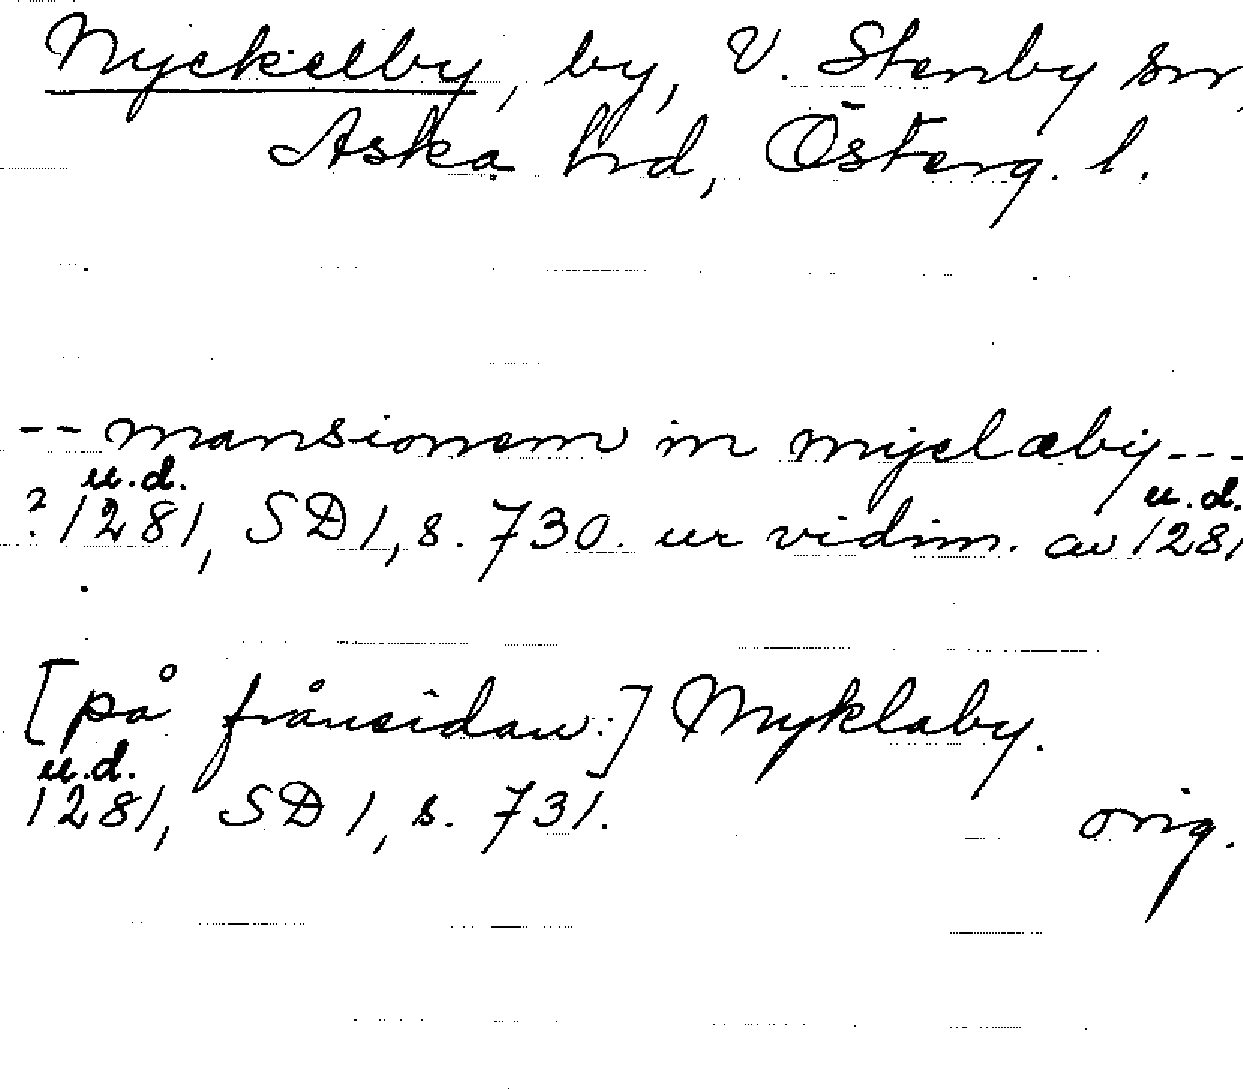 Nyckelby, by, V. Stenby sn,
Aska hrd, Österg. l.
-- mansionem in myclæby ---
u.d. u.d.
? 1281, SD 1, s. 730. ur vidim. av 1281
[på frånsidan:] Myklaby.
u.d.
1281, SD 1, s. 731.
orig.